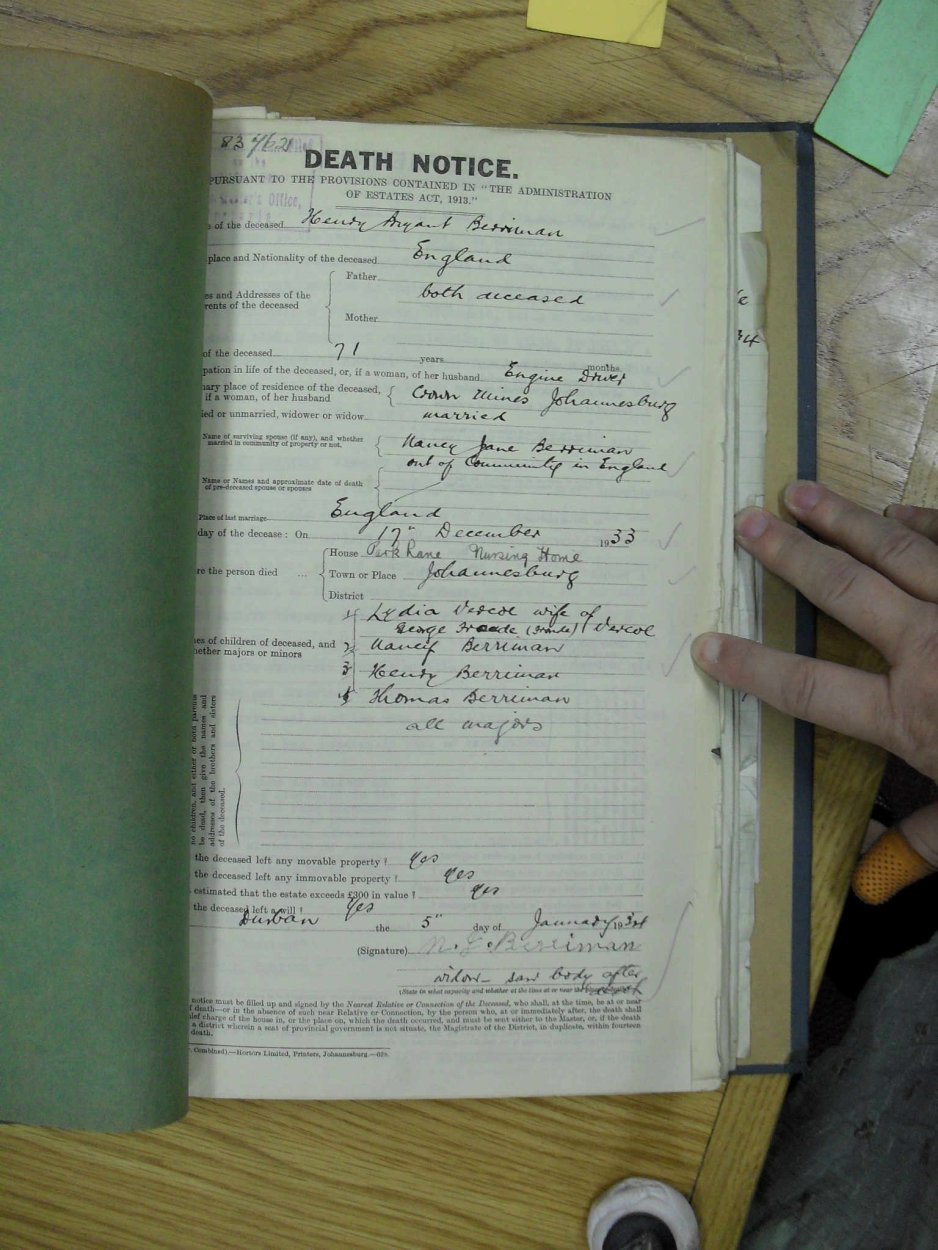 83462
DEATH NOTICE.
PURSUANT TO THE PROVISIONS CONTAINED IN "THE ADMINISTRATION
OF ESTATES ACT, 1913."
Office,
of the deceased Henry Bryant Berriman
place and Nationality of the deceased England
Father
es and Addresses of the
rents of the deceased
both deceased
Mother
of the deceased 71 years months
pation in life of the deceased, or, if a woman, of her husband Engine Driver
nary place of residence of the deceased,
if a woman, of her husband
Crown Mines Johannesburg
ied or unmarried, widower or widow married
Name of surviving spouse (if any), and whether
married in community of property or not.
Nancy Jane Berriman
out of Community in England
Name or Names and approximate date of death
of pre-deceased spouse or spouses
Place of last marriage England
day of the decease: On 17" December 1933
House Park Lane Nursing Home
re the person died ... Town or Place Johannesburg
District
1 Lydia Vercoe wife of
George Froude (Froude) Vercoe
es of children of deceased, and
hether majors or minors
2 Nancy Berriman
3 Henry Berriman
4 Thomas Berriman
all majors
no children, and either or both parents
be dead, then give the names and
addresses of the brothers and sisters
of the deceased.
the deceased left any movable property? Yes
the deceased left any immovable property? Yes
estimated that the estate exceeds £300 in value? Yes
the deceased left a will? Yes
Durban the 5" day of January 1934
(Signature) N. J. Berriman
widow saw body after
(State in what capacity and whether at the time at or near the
notice must be filled up and signed by the Nearest Relative or Connection of the Deceased, who shall, at the time, be at or near
f death—or in the absence of such near Relative or Connection, by the person who, at or immediately after, the death shall
ief charge of the house in, or the place on, which the death occurred, and must be sent either to the Master, or, if the death
a district wherein a seat of provincial government is not situate, the Magistrate of the District, in duplicate, within fourteen
death.
Combined).—Hortors Limited, Printers, Johannesburg.